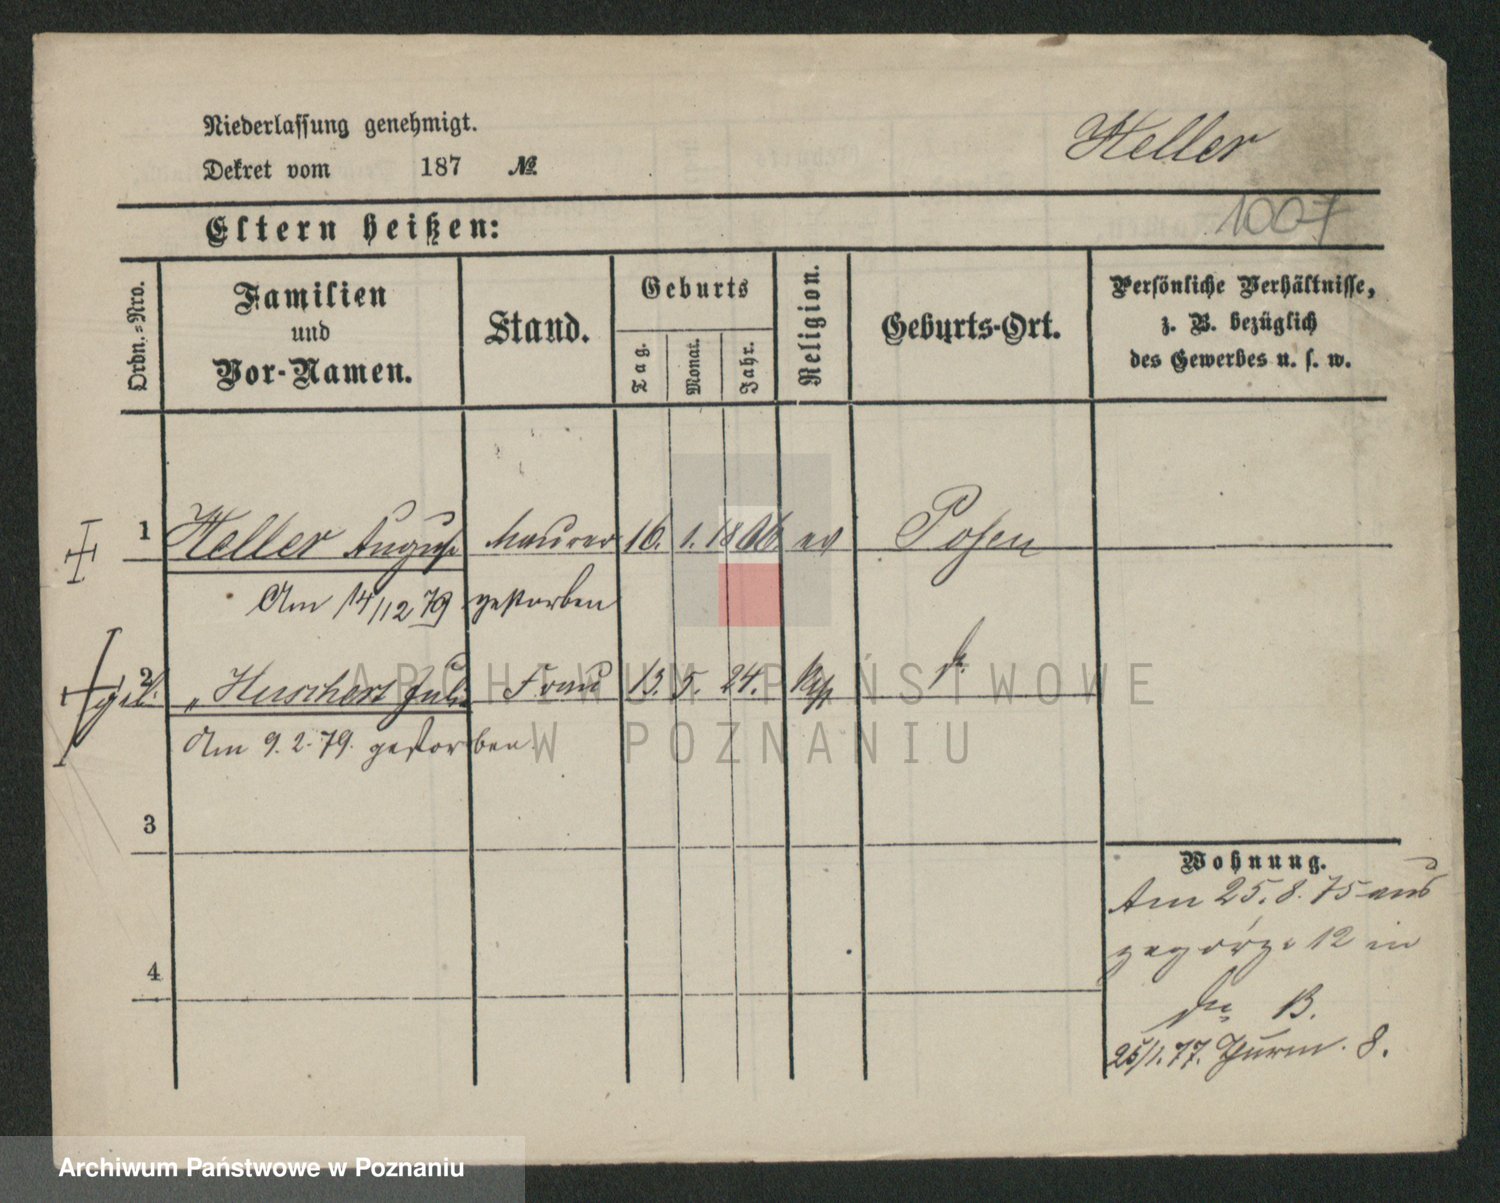 Niederlassung genehmigt.
Heller
Dekret vom 187 №
Eltern heißen:
1007
Ordn.-Nro.
Familien und Vor-Namen.
Stand.
Geburts
Tag.
Monat.
Jahr.
Religion.
Geburts-Ort.
Persönliche Verhältnisse,
z. B. bezüglich
des Gewerbes u. s. w.
1 Heller August Maurer 16. 1. 18 ev Posen
Am 14/12 79 gestorben
2 " Huschert Juli Frau 13. 5. 24. do
Am 9. 2. 79. gestorben
3
Wohnung.
Am 25. 8. 75 aus
zegórze 12 in
4
do B.
25/1. 77. Thurm. 8.
ARCHIWUM PAŃSTWOWE
W POZNANIU
Archiwum Państwowe w Poznaniu